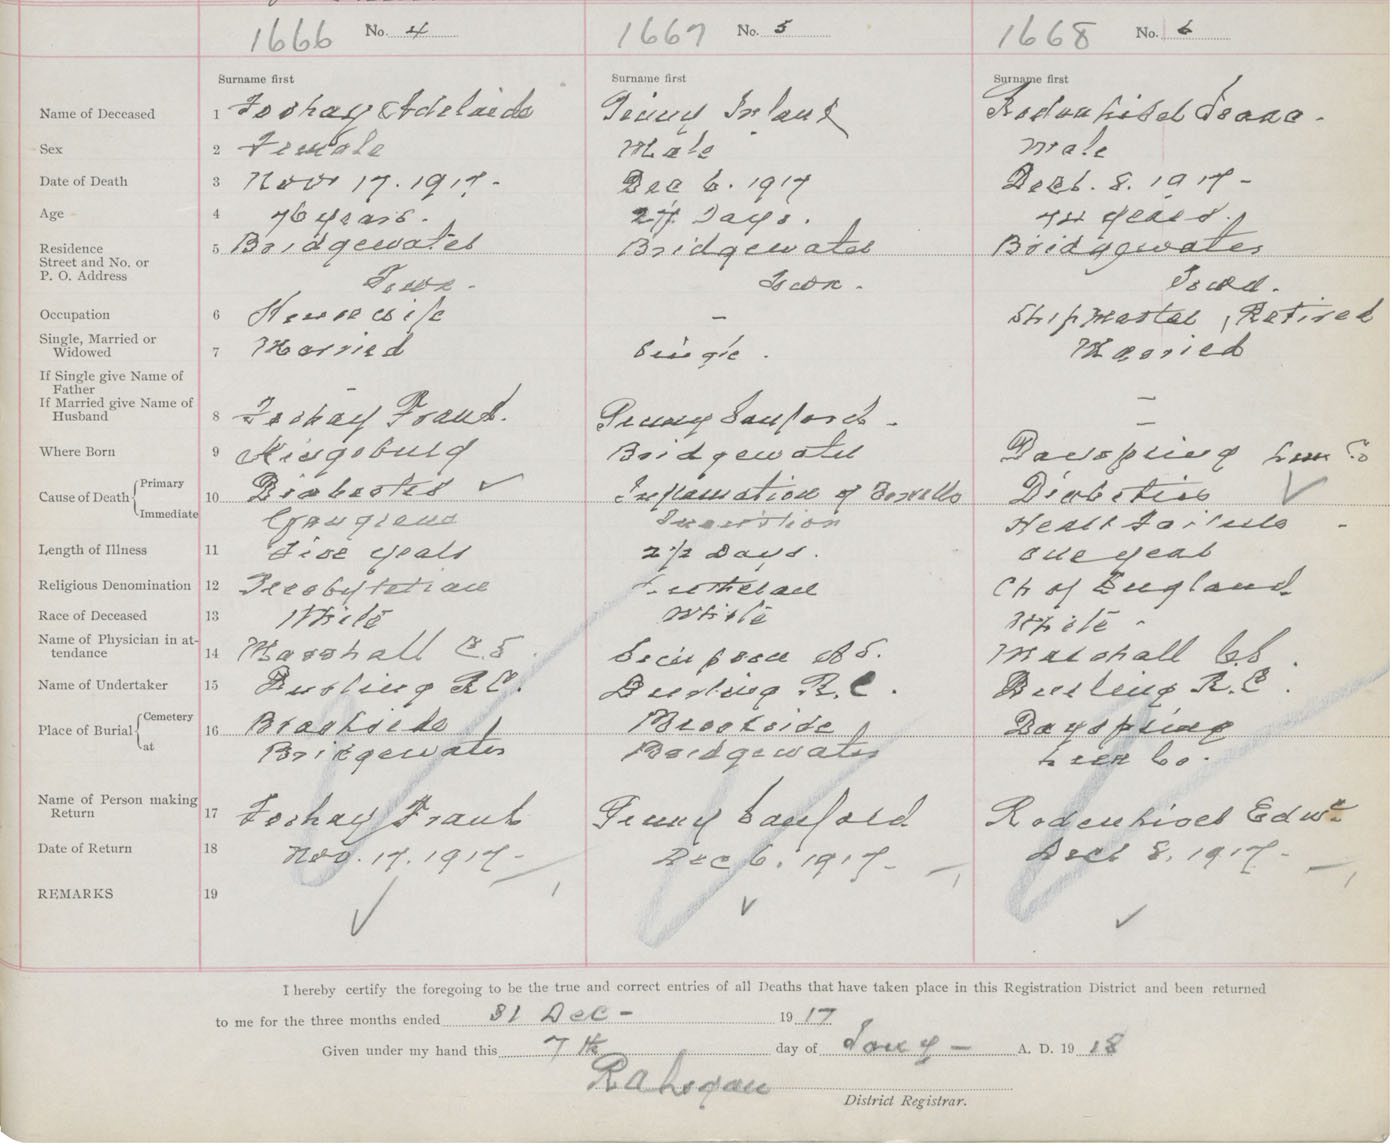 1666 No. 4 1667 No. 5 1668 No. 6
Surname first Surname first Surname first
Name of Deceased 1 Foshay Adelaide Penny Ireland Rodenhiser Isaac -
Sex 2 Female Male Male
Date of Death 3 Nov 17. 1917 - Dec 6. 1917 Dec. 8. 1917 -
Age 4 76 years. 27 Days. 74 years.
Residence 5 Bridgewater Bridgewater Bridgewater
Street and No. or
P. O. Address Town - Town - Town.
Occupation 6 House wife - Shipmaster, Retired
Single, Married or
Widowed 7 Married Single. Married
If Single give Name of
Father - -
If Married give Name of
Husband 8 Foshay Frank. Penny Sanford - -
Where Born 9 Kingsburg Bridgewater Dayspring Lun Co
Cause of Death Primary 10 Diabestes ✓ Inflamation of Bowells Diabetis ✓
Immediate Gangrene Heart Failure -
Length of Illness 11 Five years 2½ Days. one year
Religious Denomination 12 Presbyterian Lutheran Ch of England
Race of Deceased 13 White White White -
Name of Physician in at-
tendance 14 Marshall C.S. Simpson Marshall C.S.
Name of Undertaker 15 R.C. R.C. R.C.
Place of Burial Cemetery 16 Brookside Brookside Dayspring
at Bridgewater Bridgewater Lun Co.
Name of Person making
Return 17 Foshay Frank Penny Sanford Rodenhiser Edwd
Date of Return 18 Nov. 17. 1917 - Dec 6. 1917 - Dec 8. 1917 -
REMARKS 19 ✓ ✓ ✓
I hereby certify the foregoing to be the true and correct entries of all Deaths that have taken place in this Registration District and been returned
to me for the three months ended 31 Dec - 1917
Given under my hand this 7th day of Jany - A. D. 1918
District Registrar.